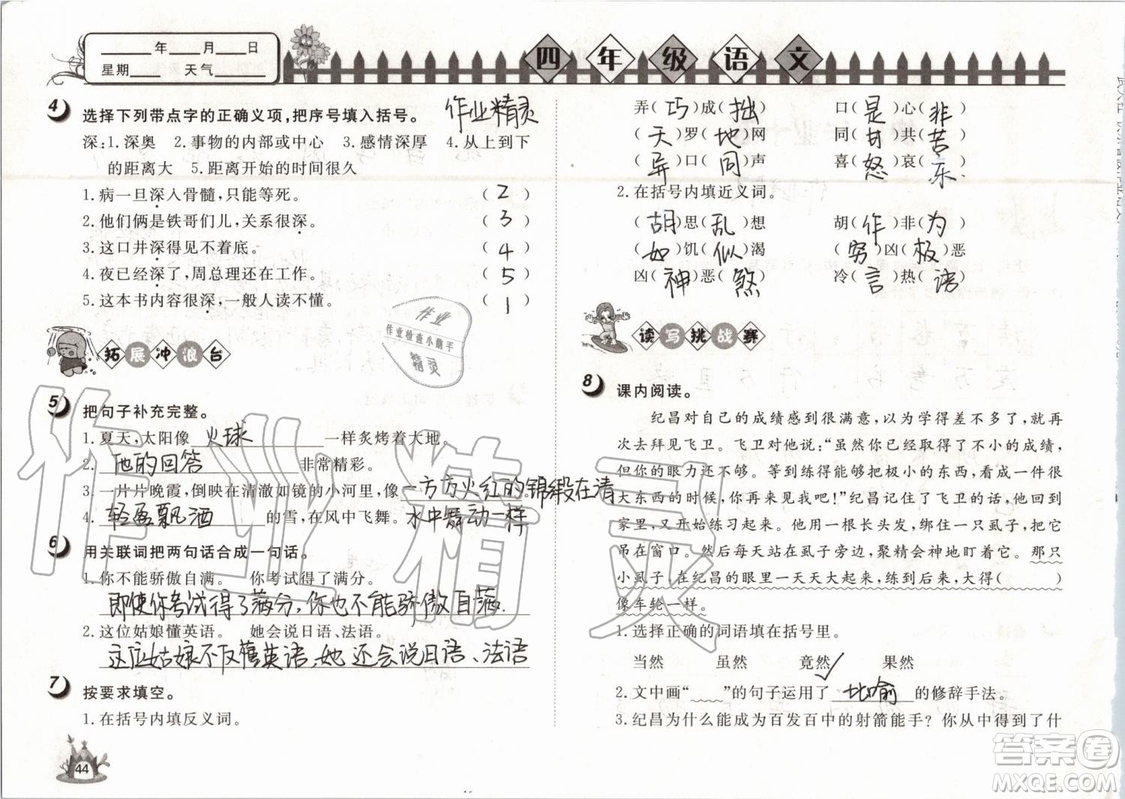 ____年____月____日
星期______ 天气______
四年级语文
4 选择下列带点字的正确义项,把序号填入括号。 作业精灵
深:1.深奥 2.事物的内部或中心 3.感情深厚 4.从上到下
的距离大 5.距离开始的时间很久
1.病一旦深入骨髓,只能等死。 (2)
2.他们俩是铁哥们儿,关系很深。 (3)
3.这口井深得见不着底。 (4)
4.夜已经深了,周总理还在工作。 (5)
5.这本书内容很深,一般人读不懂。 (1)
作业
作业检查小助手
精灵
拓展冲浪台
5 把句子补充完整。
1.夏天,太阳像 火球 一样炙烤着大地。
2. 他的回答 非常精彩。
3.一片片晚霞,倒映在清澈如镜的小河里,像一方方火红的锦缎在清
水中舞动一样
4. 轻盈飘洒 的雪,在风中飞舞。
6 用关联词把两句话合成一句话。
1.你不能骄傲自满。 你考试得了满分。
即使你考试得了满分,你也不能骄傲自满.
2.这位姑娘懂英语。 她会说日语、法语。
这位姑娘不仅懂英语,她还会说日语、法语
7 按要求填空。
1.在括号内填反义词。
44
弄(巧)成(拙) 口(是)心(非)
(天)罗(地)网 同(甘)共(苦)
(异)口(同)声 喜(怒)哀(乐)
2.在括号内填近义词。
(胡)思(乱)想 胡(作)非(为)
(如)饥(似)渴 (穷)凶(极)恶
凶(神)恶(煞) 冷(言)热(语)
读写挑战赛
8 课内阅读。
纪昌对自己的成绩感到很满意,以为学得差不多了,就再
次去拜见飞卫。飞卫对他说:“虽然你已经取得了不小的成绩,
但你的眼力还不够。等到练得能把极小的东西,看成一件很
大的东西的时候,你再来见我吧!”纪昌记住了飞卫的话,回到
家里,又开始练习起来。他用一根长头发,绑住一只虱子,把它
吊在窗口。然后每天站在虱子旁边,聚精会神地盯着它。那只
小虱子,在纪昌的眼里一天天大起来,练到后来,大得(  )
像车轮一样。
1.选择正确的词语填在括号里。
当然 虽然 竟然✓ 果然
2.文中画“﹏﹏”的句子运用了 比喻 的修辞手法。
3.纪昌为什么能成为百发百中的射箭能手?你从中得到了什
作业精灵
答案圈
MXQE.COM